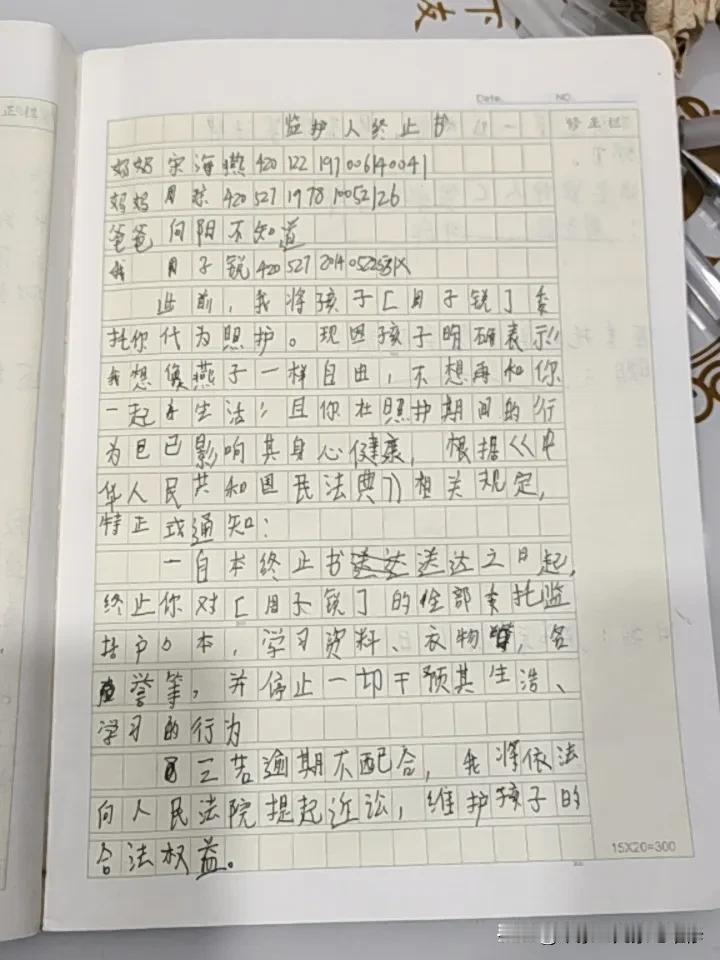 Date.
NO.
正栏
监护人终止书
修正栏
妈妈宋海燕420122197006140041
妈妈周琼420527197810052126
爸爸向阳不知道
我 周子锐420527201405225831X
此前，我将孩子[周子锐]委
托你代为照护。现因孩子明确表示"
我想像燕子一样自由，不想再和你
一起生活"且你在照护期间的行
为已影响其身心健康，根据《中
华人民共和国民法典》相关规定，
特正式通知：
一自本终止书送达之日起，
终止你对[周子锐]的全部委托监
括户口本，学习资料、衣物等，名
誉等，并停止一切干预其生活、
学习的行为
三若逾期不配合，我将依法
向人民法院提起诉讼，维护孩子的
合法权益。
15X20=300